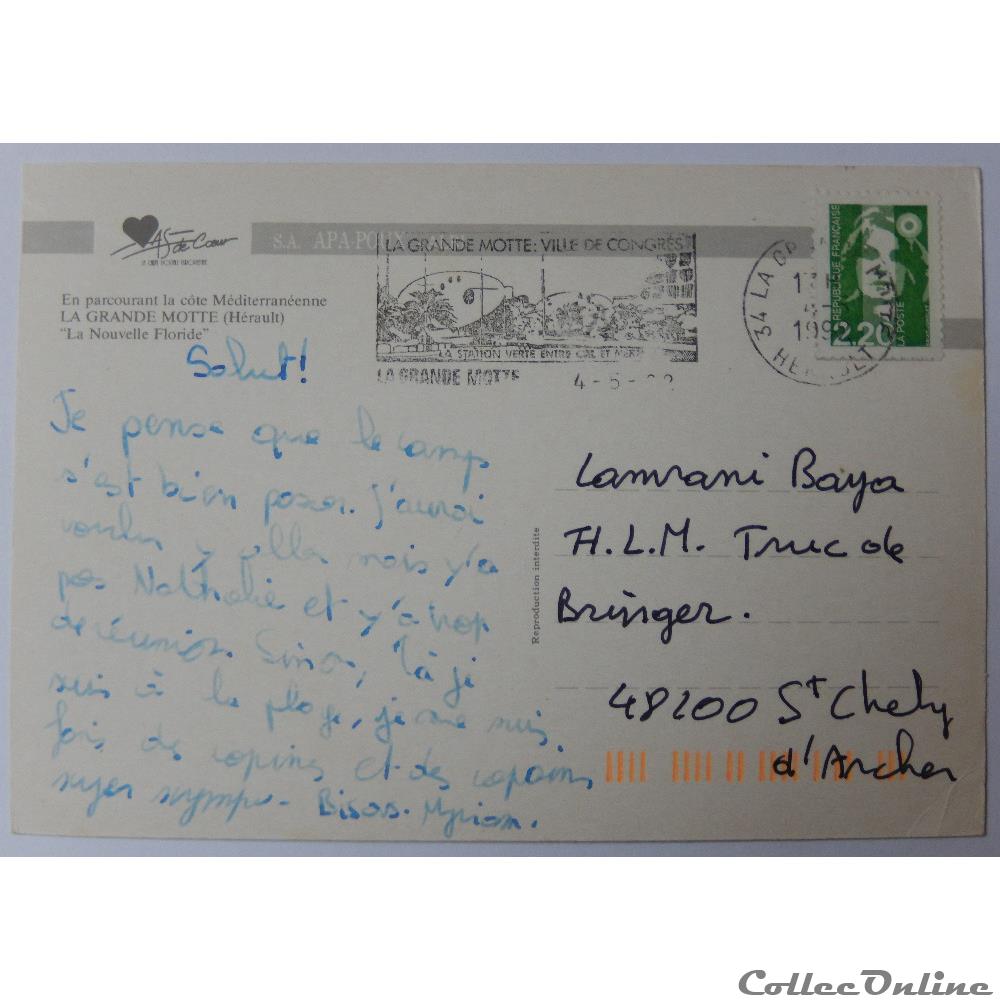 AS de Cœur
S.A. APA-POUX
LA GRANDE MOTTE: VILLE DE CONGRÈS
LA STATION VERTE ENTRE CIEL ET MER
LA GRANDE MOTTE
4-5-92
34 LA GR MOTTE
13H
4-5
1992
HERAULT
REPUBLIQUE FRANÇAISE
2,20
LA POSTE
En parcourant la côte Méditerranéenne
LA GRANDE MOTTE (Hérault)
"La Nouvelle Floride"
Salut!
Je pense que le camp
s'est bien passer. J'aurai
voulu y aller mais y'a
pas Nathalie et y'a trop
de réunion. Sinon, là je
suis à la plage, je me suis
fais des copines et des copains
super sympa. Bisos. Myriam.
Reproduction interdite
Lamrani Baya
H.L.M. Truc de
Bringer.
48200 St Chely
d'Archer
CollecOnline